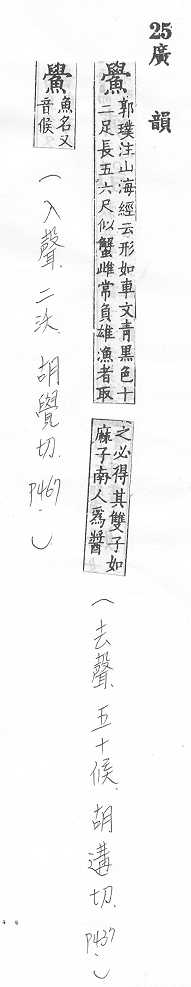 25廣韻
鱟
郭璞注山海經云形如車文青黑色十
二足長五六尺似蟹雌常負雄漁者取
之必得其雙子如
麻子南人爲醬
(去聲.五十候.胡遘切.P437.)
鱟
魚名又
音候
(入聲.二沃.胡覺切.P467.)